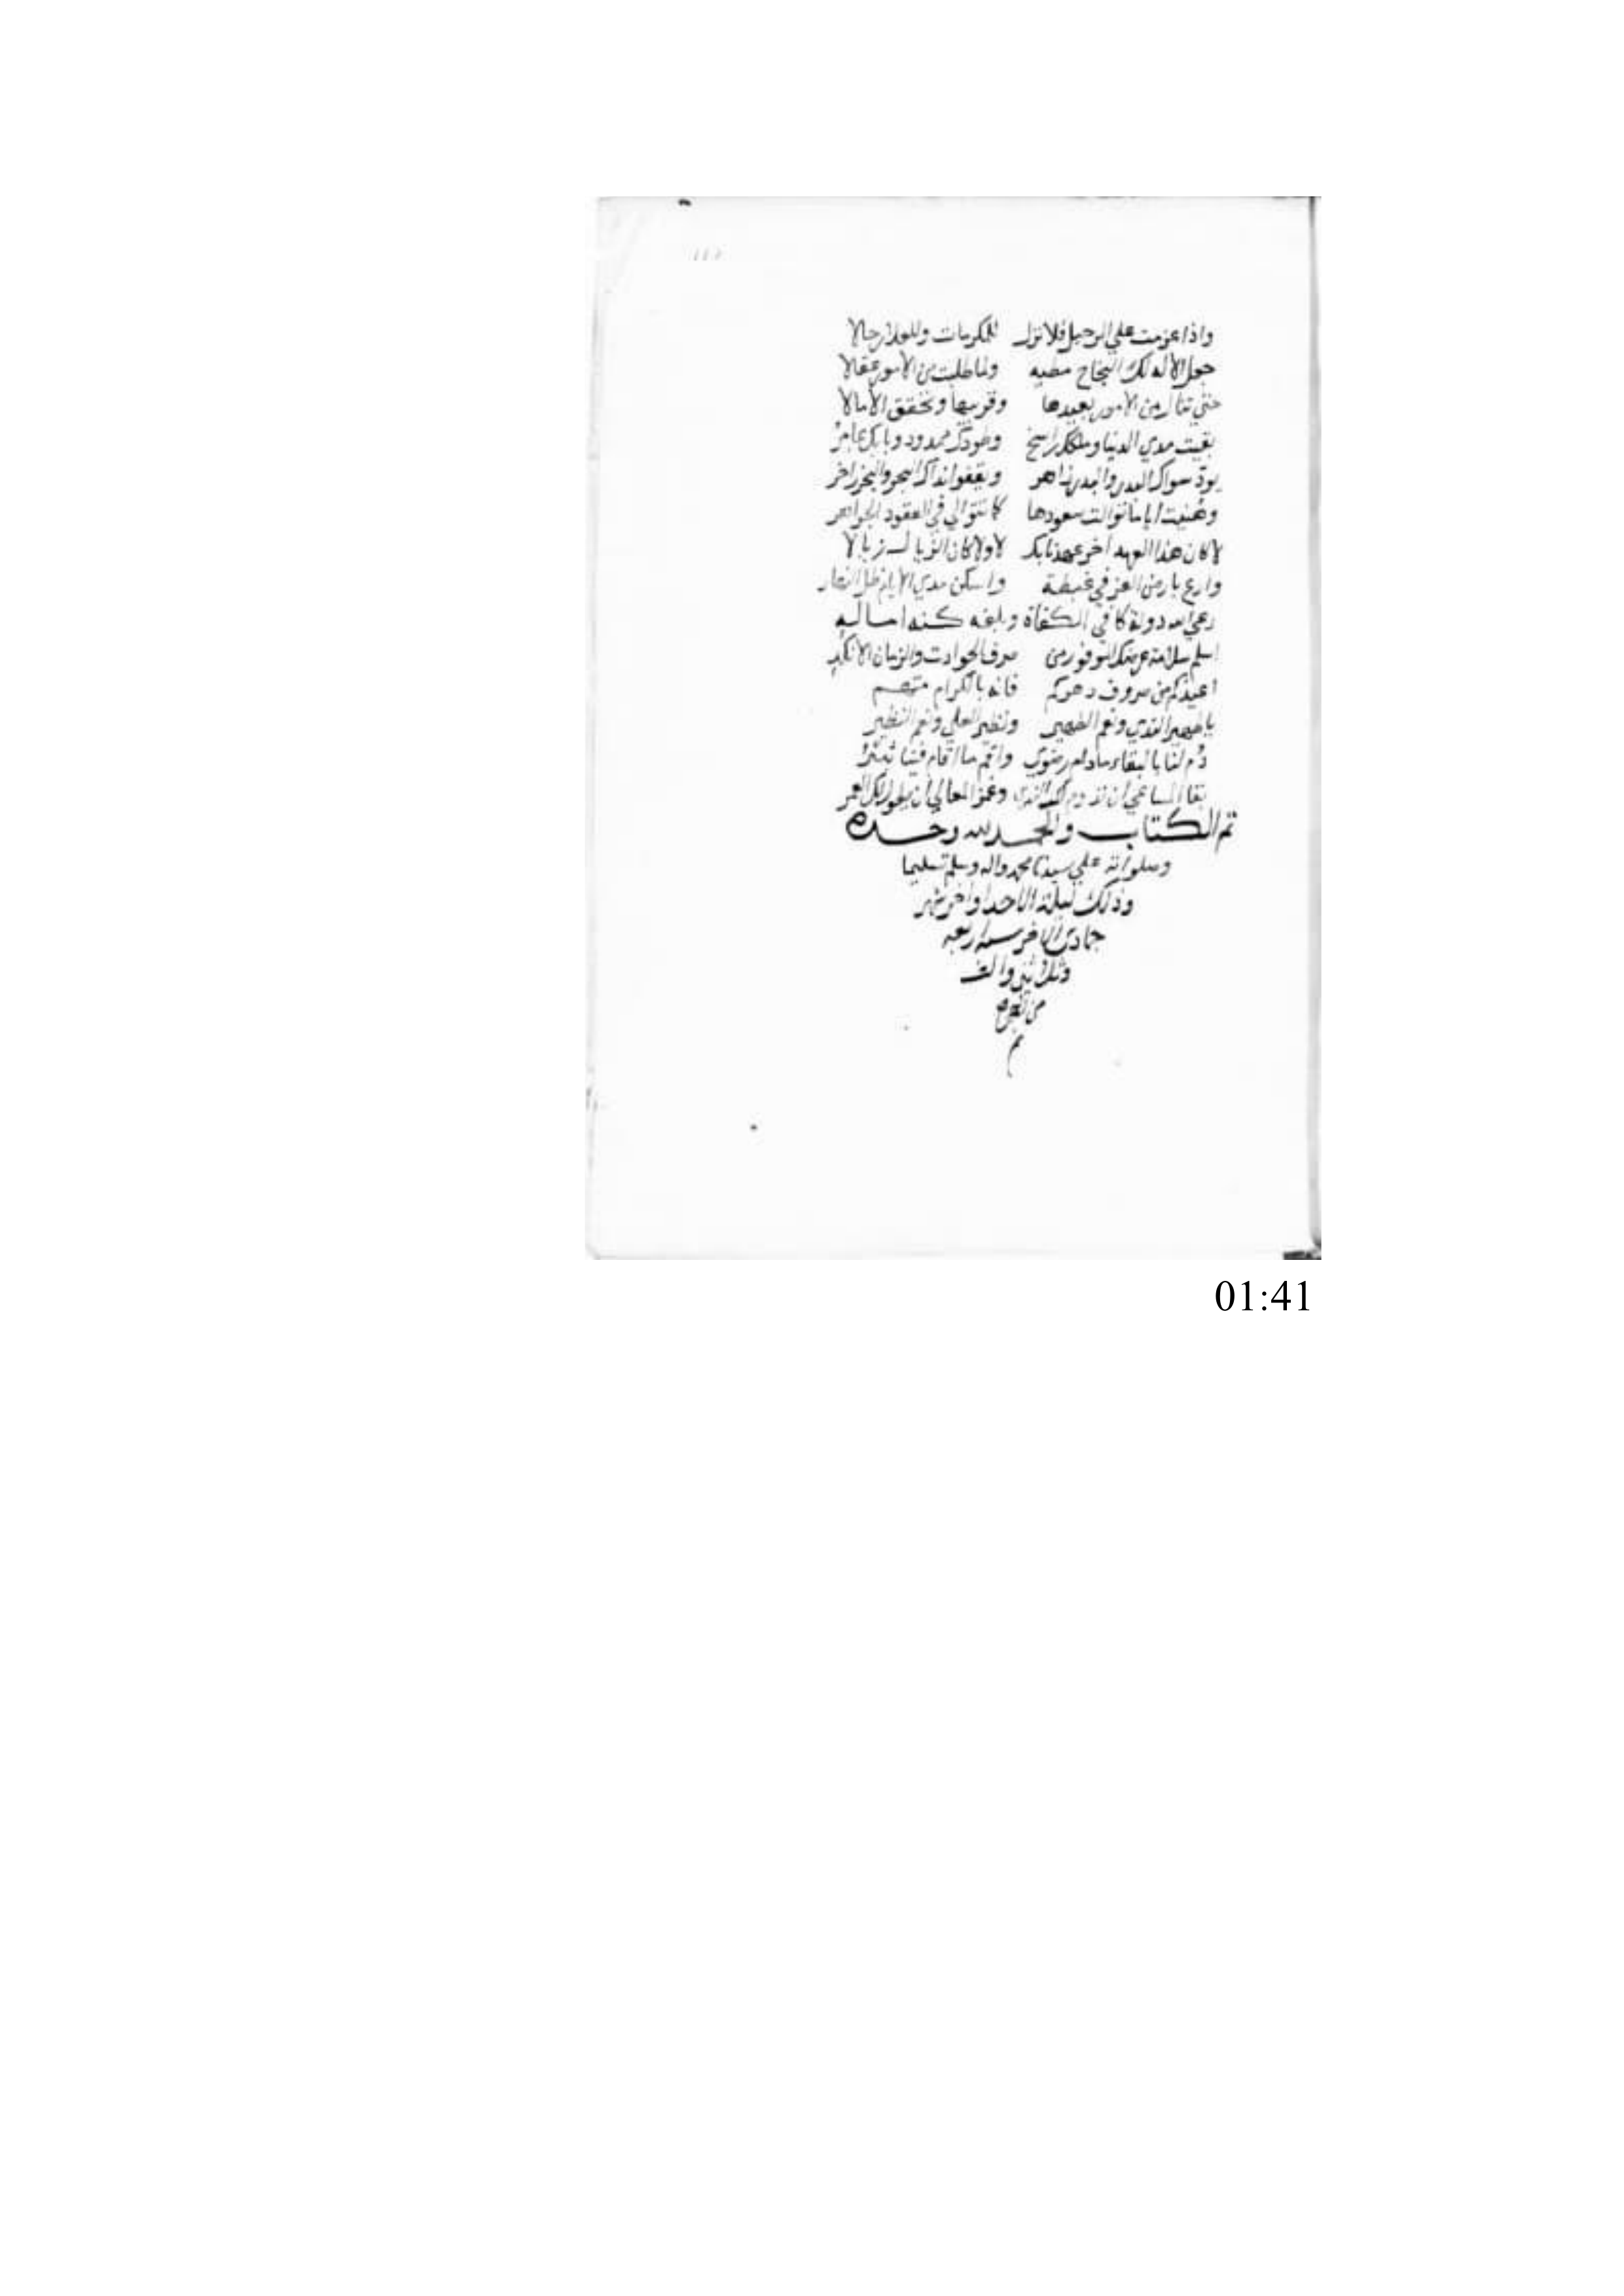 ١١٢
واذا عزمت علي الرحيل فلا تزل للمكرمات وللعلا رحالا
جعل الاله لك النجاح مطيه ولما طلبت من الامور عقالا
حتي تنال من الامور بعيدها وقريبها وتحقق الامالا
بقيت مدي الدنيا وملكك راسخ وطودك ممدود وبابك عامر
يود سواك البدر والبدر زاهر ويقفوا نداك البحر والبحر زاخر
وهنيت اياما توالت سعودها كما تتوالي في العقود الجواهر
لا كان هذا العهد اخر عهدنا بك لا ولا كان الزيال زيالا
وارع بارض العز في غبطة واسكن مدي الايام ظل
رعي الله دولة كافي الكفاة وبلغه كنه اماله
اسلم سلامة عرضك الموفور من صرف الحوادث والزمان الانكد
اعيذكم من صروف دهركم فانه بالكرام متهم
يا ظهير الندي ونعم الظهير ونضير العلي ونعم النضير
دم لنا بالبقاء ما دام رضوي واقم ما اقام فينا ثبير
بقا المساعي ان تدوم لك وعمر المعالي ان يطول لك العمر
تم الكتاب والحمد لله وحده
وصلواته علي سيدنا محمد واله وسلم تسليما
وذلك ليلة الاحد اواخر شهر
جمادى الاخر سنه اربعه
وثلاثين والف
من الهجره
تم
01:41